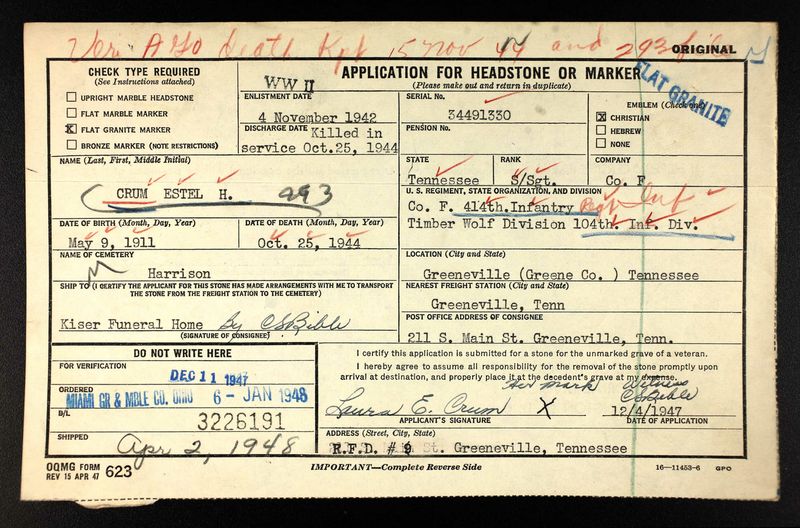 Veri A Go death Rpt 15 Nov 44 and 293 file
ORIGINAL
CHECK TYPE REQUIRED
(See Instructions attached)
UPRIGHT MARBLE HEADSTONE
FLAT MARBLE MARKER
X FLAT GRANITE MARKER
BRONZE MARKER (NOTE RESTRICTIONS)
WW II
ENLISTMENT DATE
4 November 1942
DISCHARGE DATE Killed in
service Oct.25, 1944
APPLICATION FOR HEADSTONE OR MARKER
(Please make out and return in duplicate)
SERIAL No.
34491330
PENSION No.
EMBLEM (Check one)
X CHRISTIAN
HEBREW
NONE
FLAT GRANITE
NAME (Last, First, Middle Initial)
CRUM ESTEL H. 293
STATE
Tennessee
RANK
S/Sgt.
COMPANY
Co. F
U. S. REGIMENT, STATE ORGANIZATION, AND DIVISION
Co. F. 414th Infantry Inf
Timber Wolf Division 104th. Inf. Div.
DATE OF BIRTH (Month, Day, Year)
May 9, 1911
DATE OF DEATH (Month, Day, Year)
Oct. 25, 1944
NAME OF CEMETERY
Harrison
LOCATION (City and State)
Greeneville (Greene Co. ) Tennessee
SHIP TO (I CERTIFY THE APPLICANT FOR THIS STONE HAS MADE ARRANGEMENTS WITH ME TO TRANSPORT
THE STONE FROM THE FREIGHT STATION TO THE CEMETERY)
Kiser Funeral Home By CSBible
(SIGNATURE OF CONSIGNEE)
NEAREST FREIGHT STATION (City and State)
Greeneville, Tenn
POST OFFICE ADDRESS OF CONSIGNEE
211 S. Main St. Greeneville, Tenn.
DO NOT WRITE HERE
FOR VERIFICATION
DEC 11 1947
ORDERED
MIAMI GR & MBLE CO, OHIO 6 - JAN 1948
B/L
3226191
SHIPPED
Apr 2, 1948
I certify this application is submitted for a stone for the unmarked grave of a veteran.
I hereby agree to assume all responsibility for the removal of the stone promptly upon
arrival at destination, and properly place it at the decedent's grave at my expense.
Her Mark Witness
Laura E. Crum X CSBible
12/4/1947
APPLICANT'S SIGNATURE
DATE OF APPLICATION
ADDRESS (Street, City, State)
R.F.D. # 9 St. Greeneville, Tennessee
OQMG FORM 623
REV 15 APR 47
IMPORTANT—Complete Reverse Side
16—11453-6 GPO